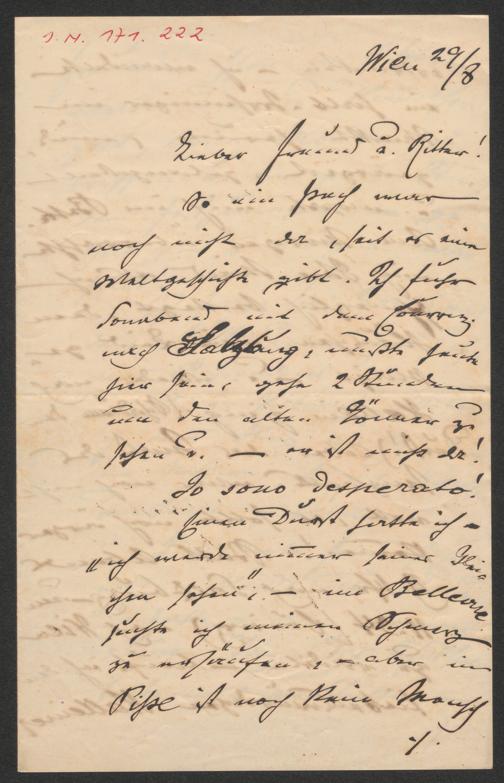 J. N. 171.222
Wien 29/8
Lieber Freund u. Ritter!
So ein Pech war
noch nicht da, seit es eine
Weltgeschichte gibt. Ich fuhr
Sonabend mit dem Courirz.
nach Salzburg, mußte heute
hier sein, gehe 2 Stunden
um den alten Gönner zu
sehen u. — er ist nicht da!
Io sono desperato!
Einen Durst hatte ich –
"ich werde nimmer seines Glei-
chen sehen", – im Bellevue
suchte ich meinen Schmerz
zu ersäufen, – aber in
Piße ist noch kein Mensch
./.